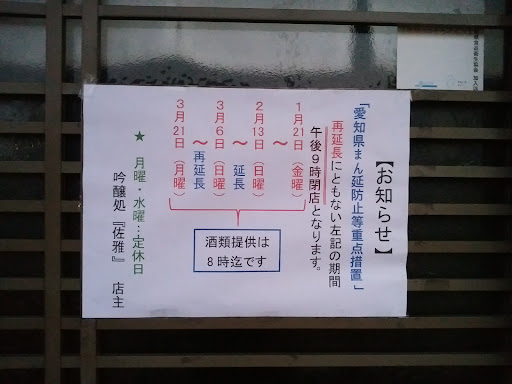 【お知らせ】
「愛知県まん延防止等重点措置」
再延長にともない左記の期間
午後9時閉店となります。
1月21日（金曜）
～
2月13日（日曜）
～延長
3月6日（日曜）
～再延長
3月21日（月曜）
酒類提供は
8時迄です
★ 月曜・水曜：定休日
吟醸処『佐雅』 店主